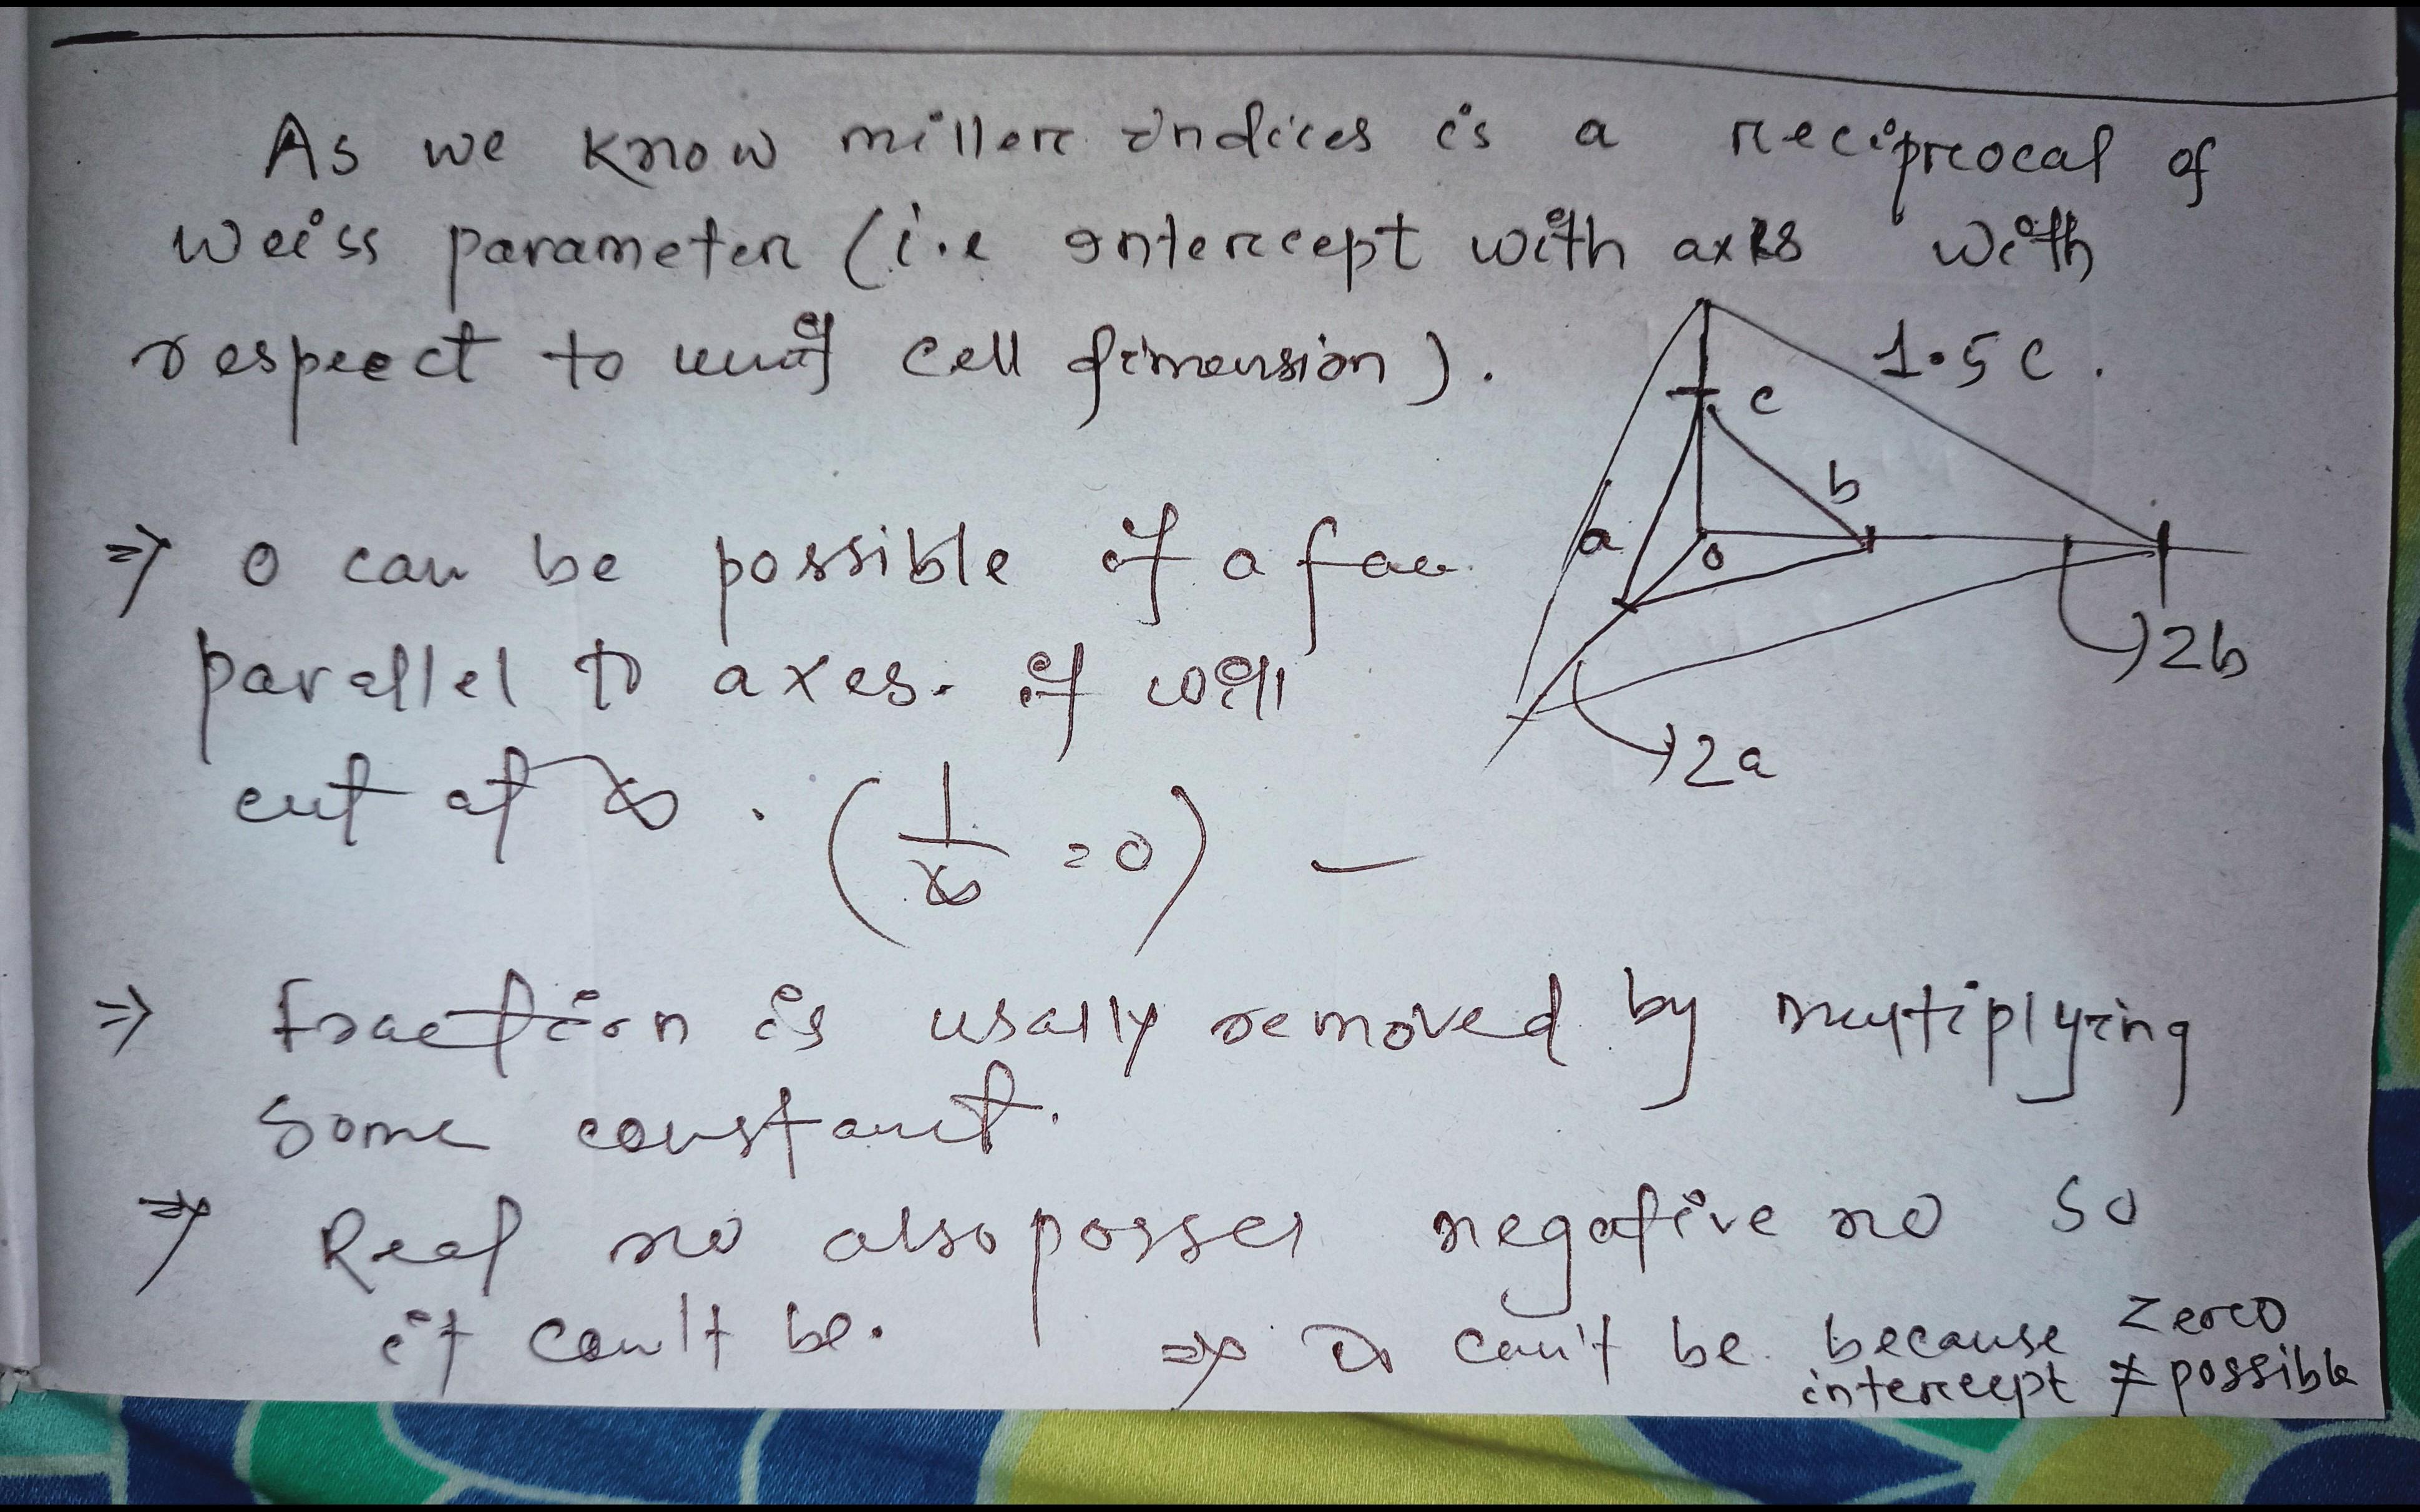 As we know miller indices is a reciprocal of
weiss parameter (i.e intercept with axes with
respect to unit cell dimension).
1.5c.
c
b
a
o
2b
2a
⇒ 0 can be possible if a face
parallel to axes. it will
cut at ∞. (1/∞ = 0) –
⇒ fraction is usally removed by multiplying
some constant.
⇒ Real no also posses negative no so
it can't be.
⇒ ∞ can't be because zero
intercept ≠ possible